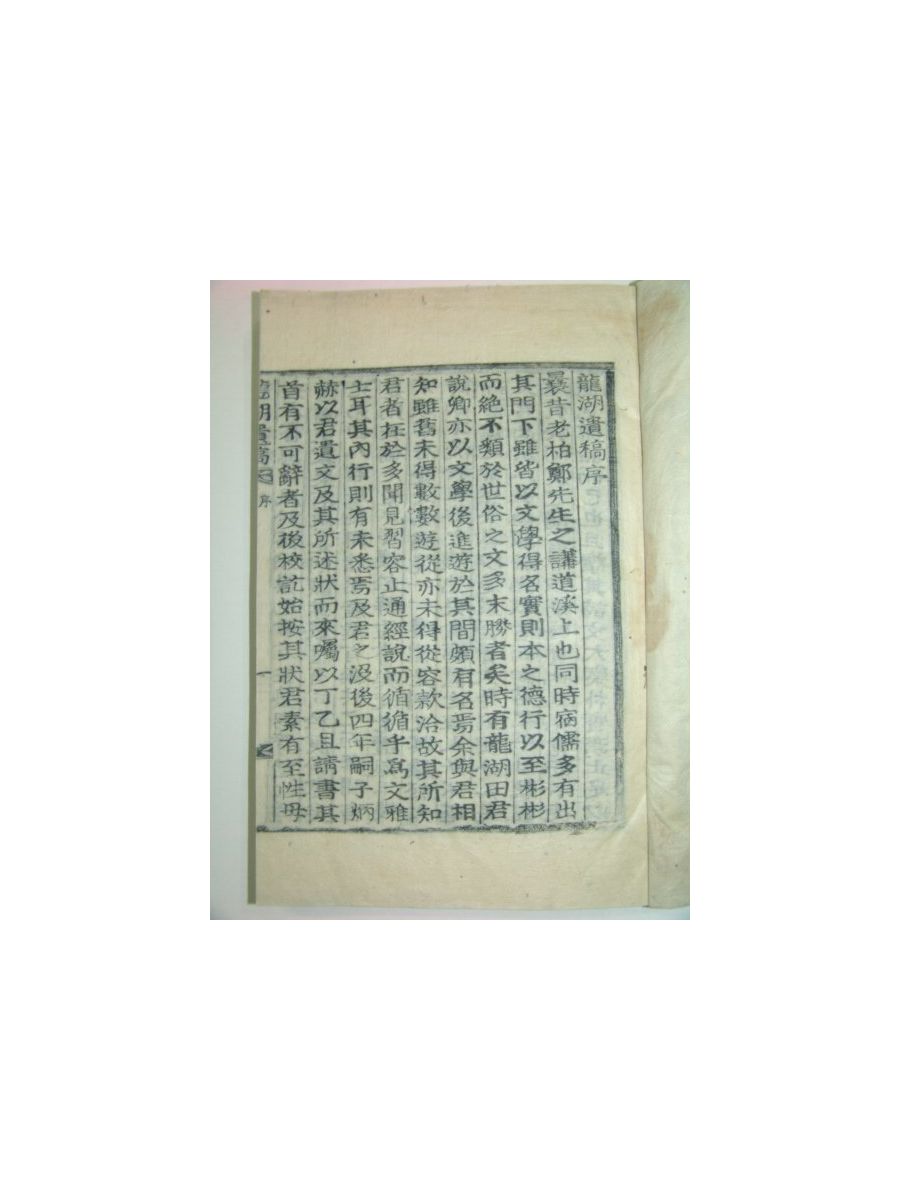 龍湖遺稿序
曩昔老柏鄭先生之講道溪上也同時病儒多有出
其門下雖皆以文學得名實則本之德行以至彬彬
而絶不類於世俗之文多末勝者矣時有龍湖田君
說卿亦以文學後進遊於其間頗有名焉余與君相
知雖舊未得數數遊從亦未得從容款洽故其所知
君者在於多聞見習容止通經說而循循乎爲文雅
士耳其內行則有未悉焉及君之沒後四年嗣子炳
赫以君遺文及其所述狀而來囑以丁乙且請書其
首有不可辭者及後校訖始按其狀君素有至性母
龍湖遺稿 序 一